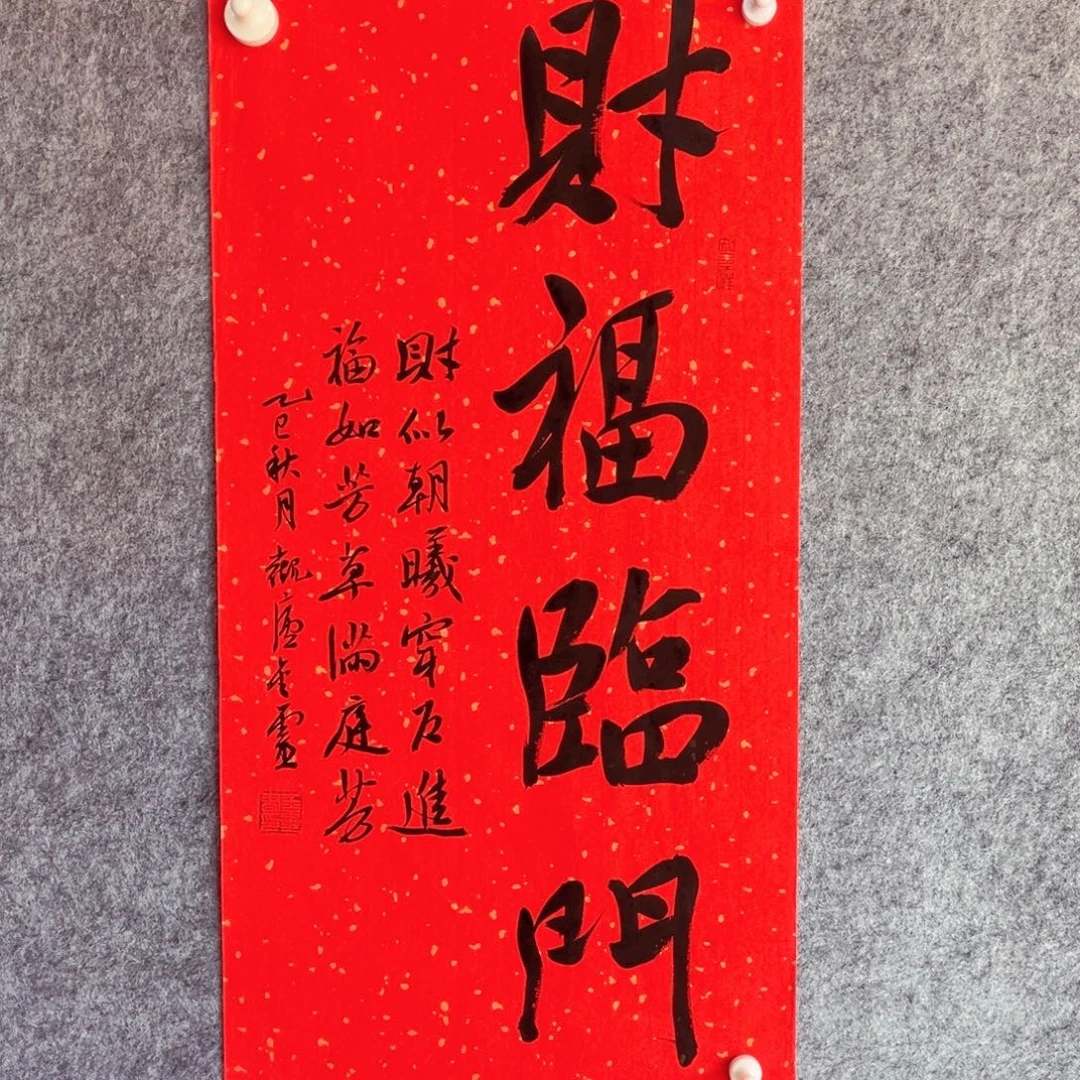 財福臨門
財似朝曦穿户進
福如芳草滿庭芳
乙巳秋月觀廬金靈